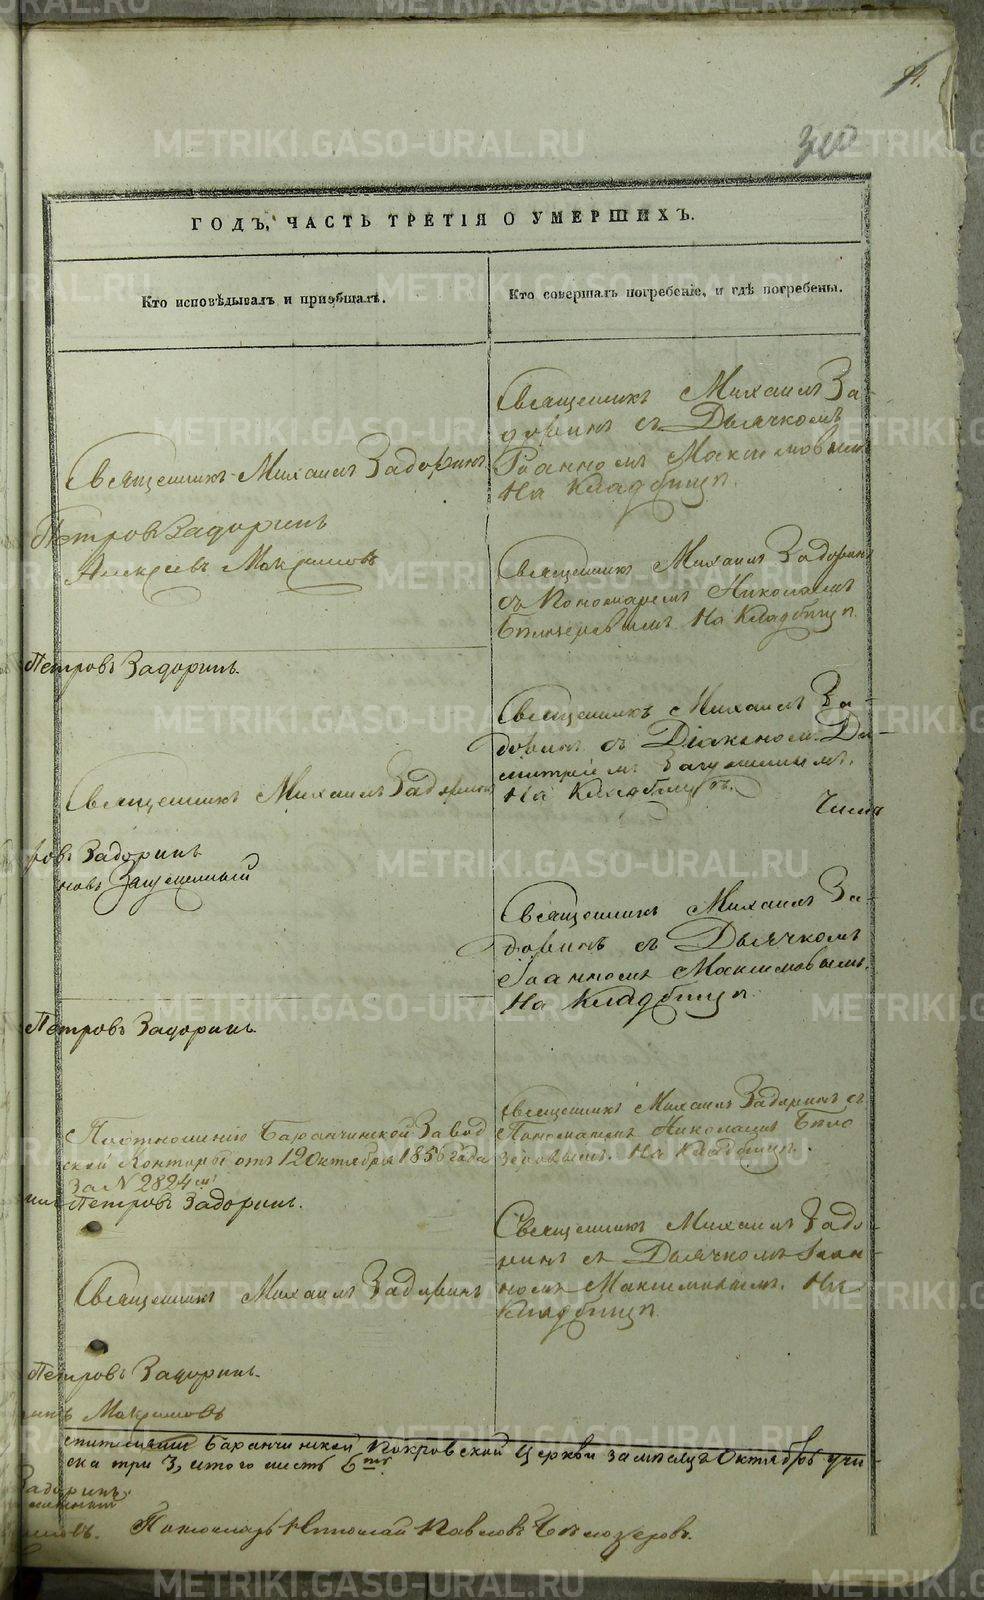 ГОДЪ, ЧАСТЬ ТРЕТІЯ О УМЕРШИХЪ.
Кто исповѣдывалъ и пріобщалъ.
Кто совершалъ погребеніе, и гдѣ погребены.
Священникъ Михаилъ За-
доринъ съ Дьячкомъ
Іоанномъ Максимовымъ
На Кладбищѣ.
Священникъ Михаилъ Задоринъ
Петровъ Задоринъ
Алексѣевъ
Священникъ Михаилъ Задоринъ
съ Пономаремъ Николаемъ
Бѣлозеровымъ На Кладбищѣ.
Петровъ Задоринъ.
Священникъ Михаилъ За-
доринъ съ Діакономъ Ди-
митріемъ
На Кладбищѣ.
Священникъ Михаилъ Задоринъ
ровъ Задоринъ
новъ
Священникъ Михаилъ За-
доринъ съ Дьячкомъ
Іоанномъ Максимовымъ.
На Кладбищѣ.
Петровъ Задоринъ.
По отношенію Баранчинской Завод
ской Конторы отъ 12 Октября 1856 года
За N 2824 мъ
Священникъ Михаилъ Задоринъ съ
Пономаремъ Николаемъ Бѣло
зеровымъ. На Кладбищѣ.
Петровъ Задоринъ.
Священникъ Михаилъ Задо-
ринъ съ Дьячкомъ Іоан-
номъ Максимовымъ. На
Кладбищѣ.
Священникъ Михаилъ Задоринъ
Петровъ Задоринъ.
Баранчинской Покровской Церкви за мѣсяцъ Октябрь
три 3, итого шесть 6
Задоринъ.
Пономарь Николай Павловъ Бѣлозеровъ.
METRIKI.GASO-URAL.RU